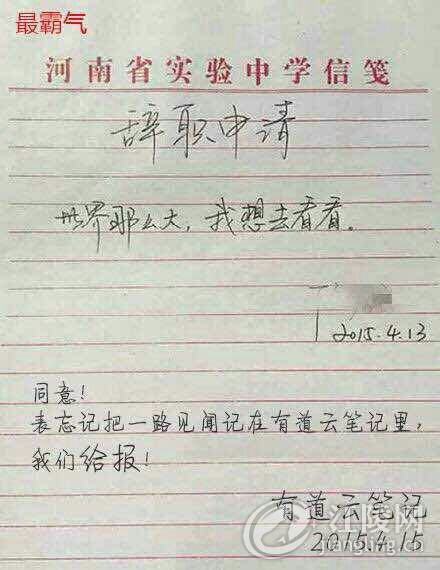 最霸气
河南省实验中学信笺
辞职申请
世界那么大，我想去看看。
2015.4.13
同意！
表忘记把一路见闻记在有道云笔记里，
我们给报！
有道云笔记
2015.4.15
江陵网
jiangling.cn